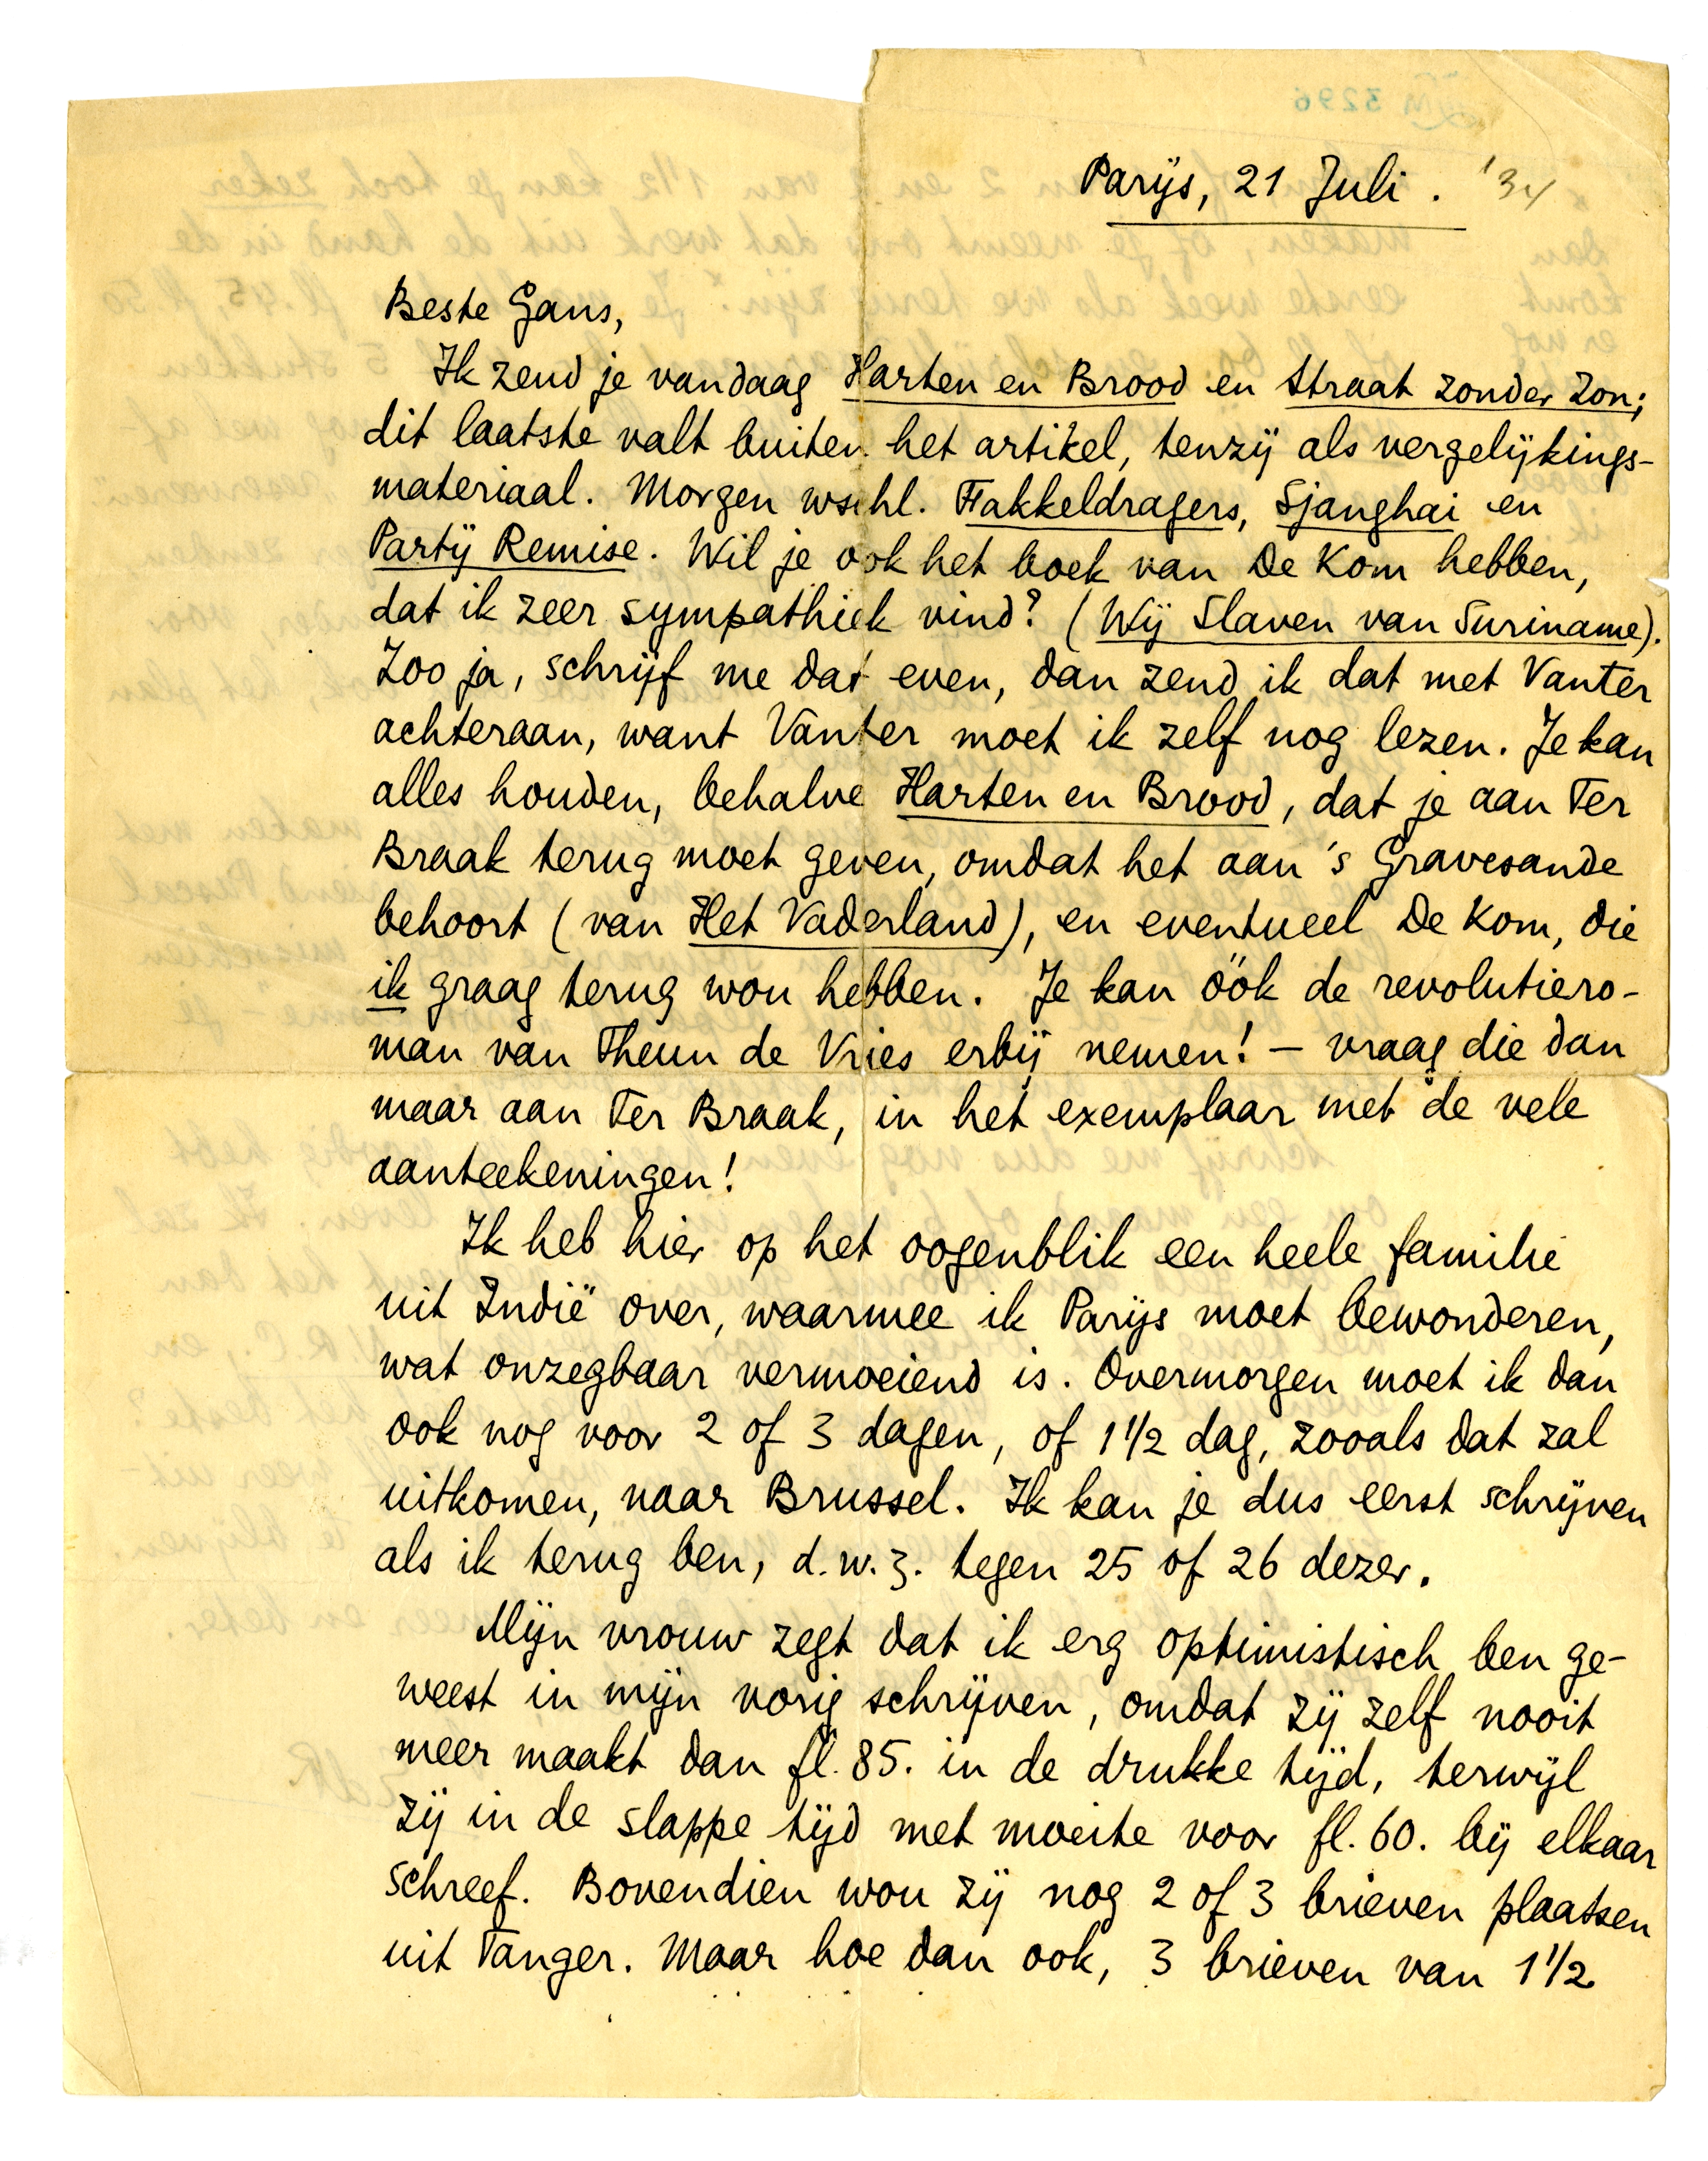 3296
Parijs, 21 Juli. '34
Beste Gans,
Ik zend je vandaag Harten en Brood en Straat zonder Zon;
dit laatste valt buiten het artikel, tenzij als vergelijkings-
materiaal. Morgen wschl. Fakkeldragers, Sjanghai en
Partij Remise. Wil je ook het boek van De Kom hebben,
dat ik zeer sympathiek vind? (Wij Slaven van Suriname).
Zoo ja, schrijf me dat even, dan zend ik dat met Vanter
achteraan, want Vanter moet ik zelf nog lezen. Je kan
alles houden, behalve Harten en Brood, dat je aan Ter
Braak terug moet geven, omdat het aan 's Gravesande
behoort (van Het Vaderland), en eventueel De Kom, die
ik graag terug wou hebben. Je kan óók de revolutiero-
man van Theun de Vries erbij nemen! – vraag die dan
maar aan Ter Braak, in het exemplaar met de vele
aanteekeningen!
Ik heb hier op het oogenblik een heele familie
uit Indië over, waarmee ik Parijs moet bewonderen,
wat onzegbaar vermoeiend is. Overmorgen moet ik dan
ook nog voor 2 of 3 dagen, of 1 1/2 dag, zooals dat zal
uitkomen, naar Brussel. Ik kan je dus eerst schrijven
als ik terug ben, d.w.z. tegen 25 of 26 dezer.
Mijn vrouw zegt dat ik erg optimistisch ben ge-
weest in mijn vorig schrijven, omdat zij zelf nooit
meer maakt dan fl. 85. in de drukke tijd, terwijl
zij in de slappe tijd met moeite voor fl. 60. bij elkaar
schreef. Bovendien wou zij nog 2 of 3 brieven plaatsen
uit Tanger. Maar hoe dan ook, 3 brieven van 1 1/2